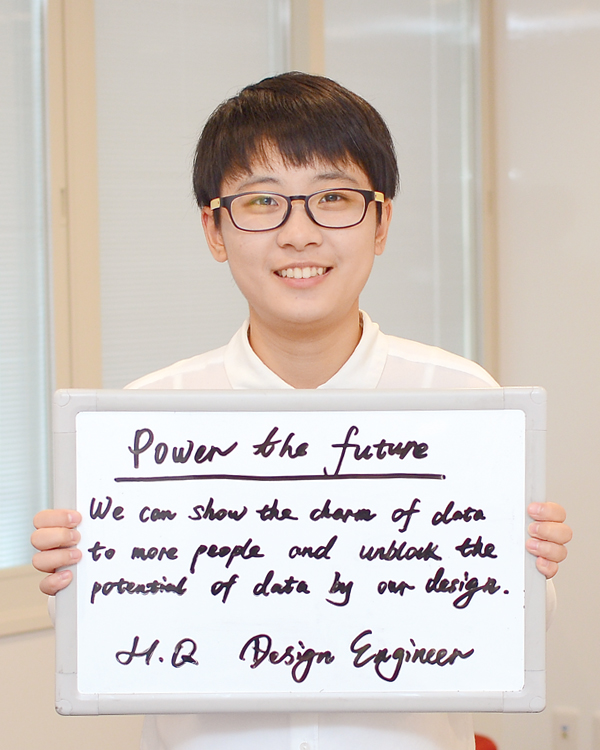 Power the future
We can show the charm of data
to more people and unblock the
potential of data by our design.
H.Q Design Engineer